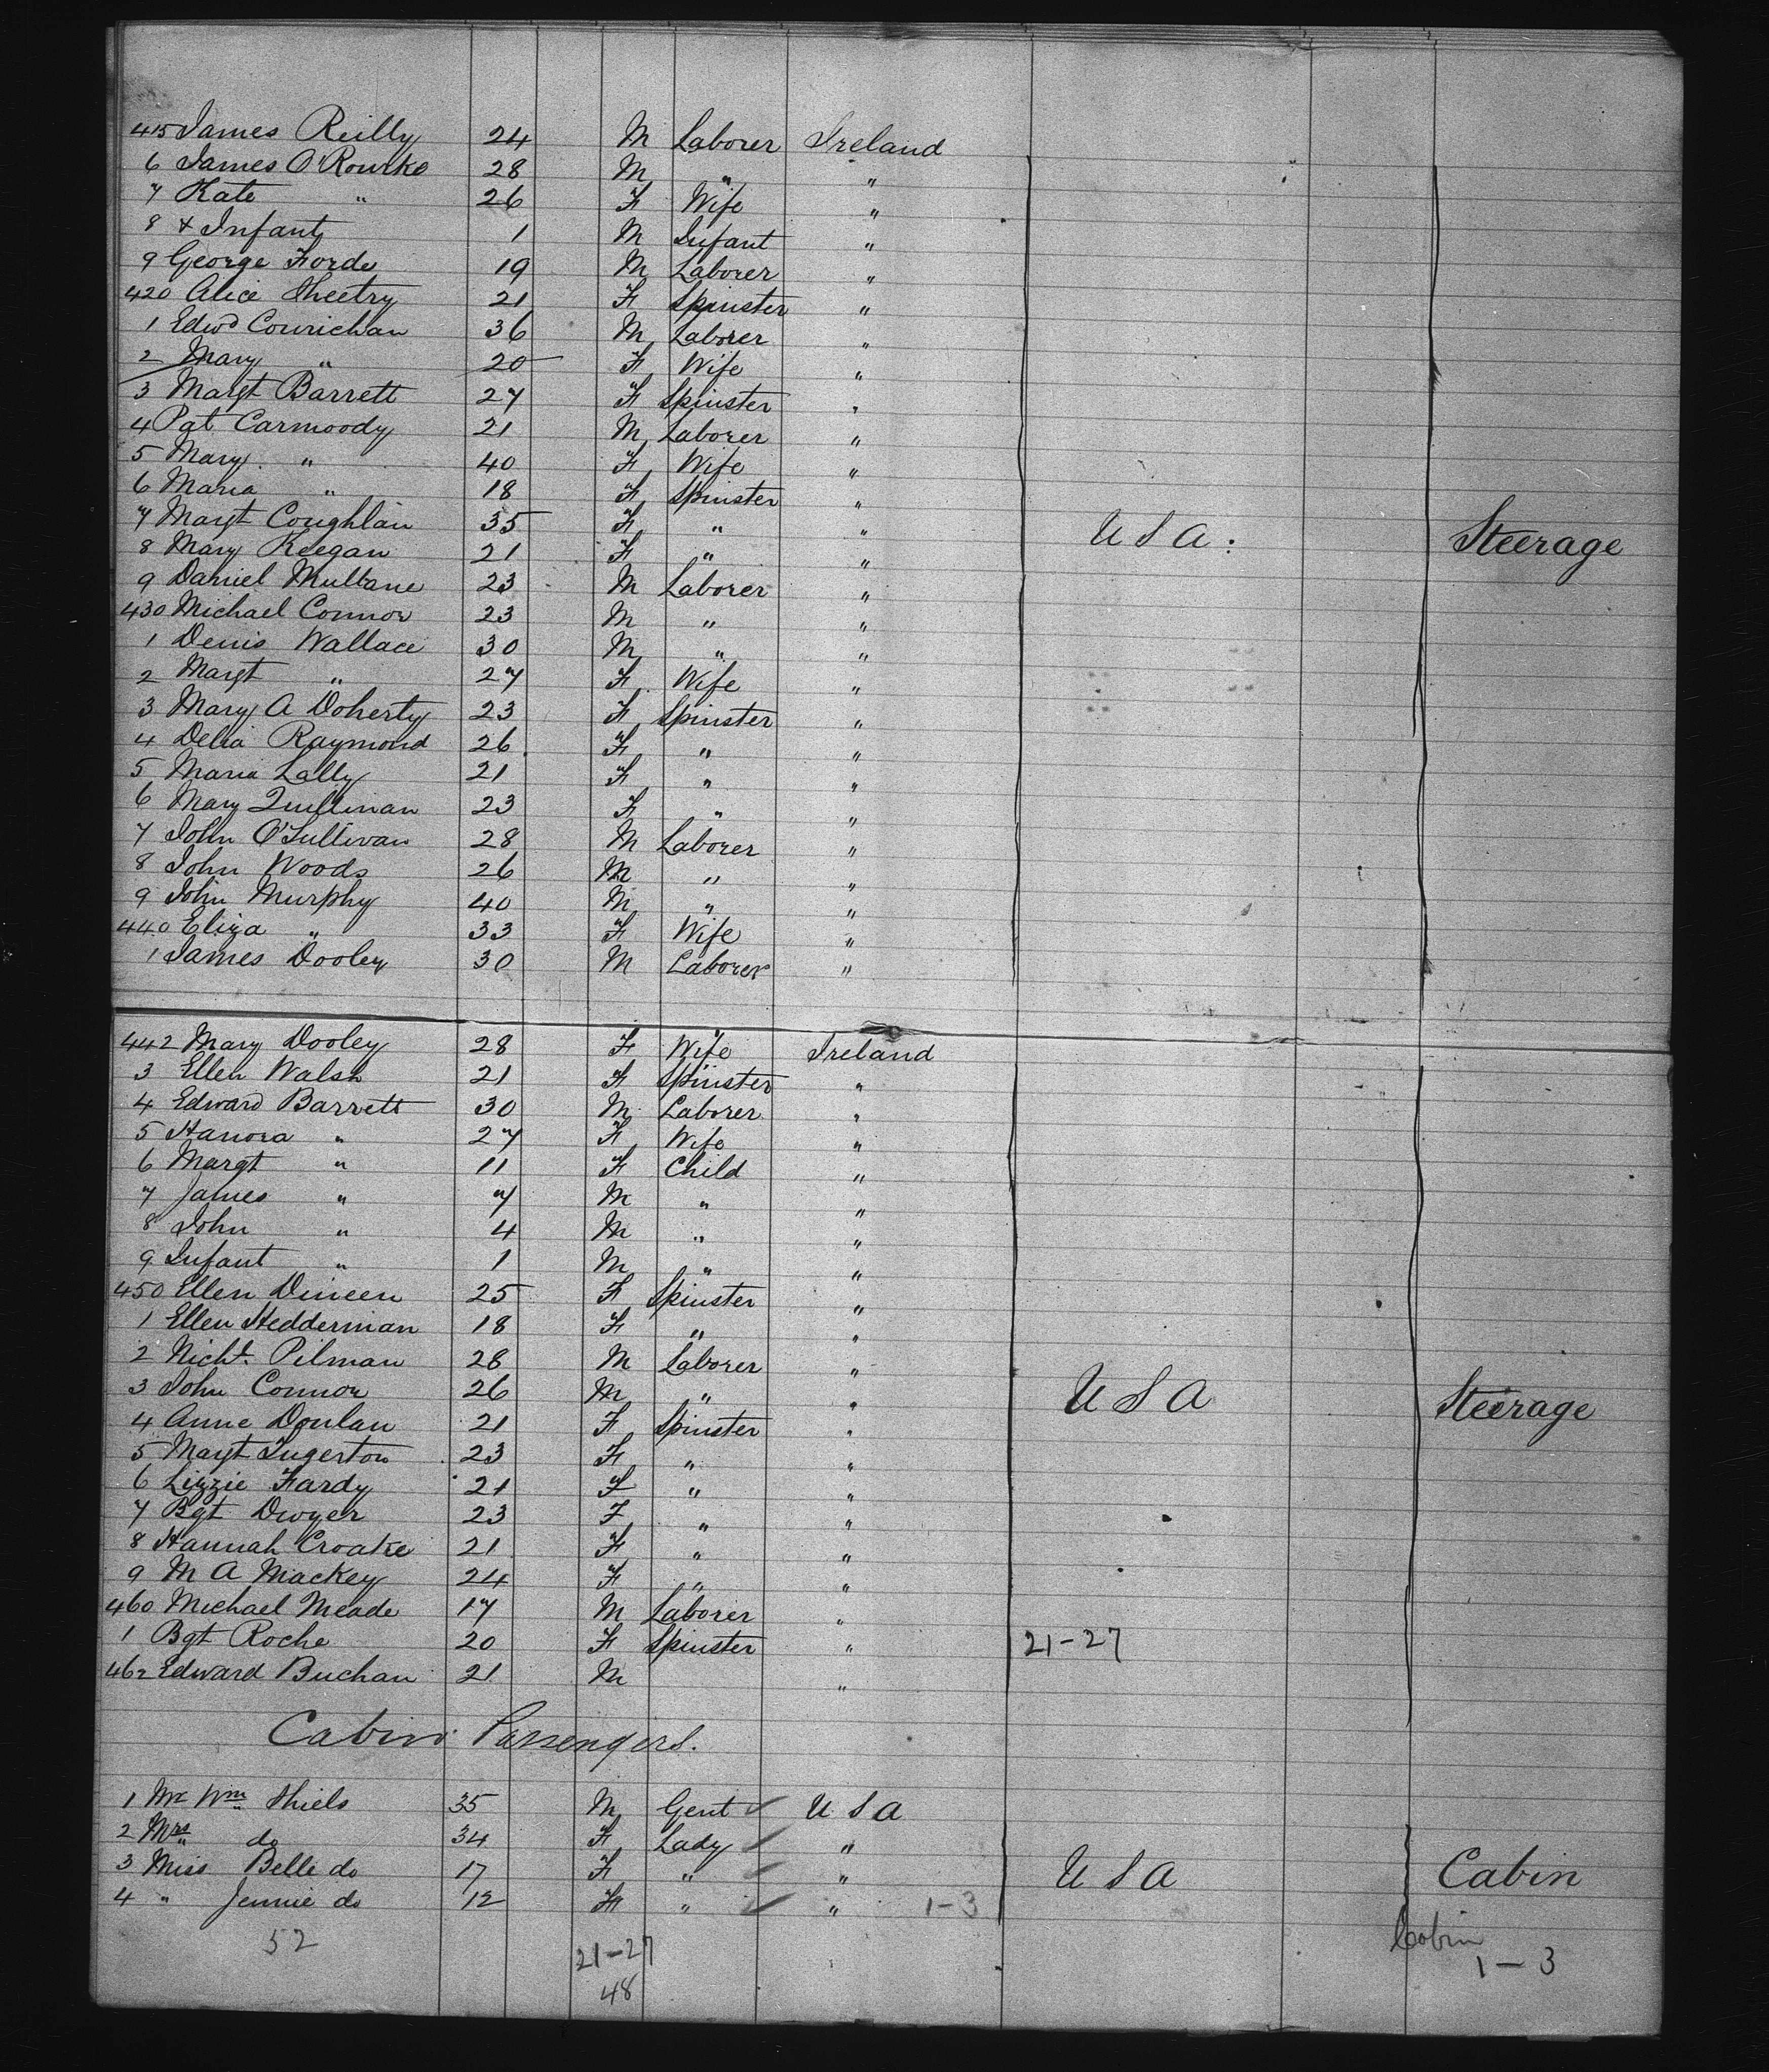 415 James Reilly 24 M Laborer Ireland
6 James O'Rourke 28 M " "
7 Kate " 26 F Wife "
8 & Infant 1 M Infant "
9 George Forde 19 M Laborer "
420 Alice Sheetry 21 F Spinster "
1 Edwd Courichan 36 M Laborer "
2 Mary " 20 F Wife "
3 Margt Barrett 27 F Spinster "
4 Pat Carmoody 21 M Laborer "
5 Mary " 40 F Wife "
6 Maria " 18 F Spinster "
7 Margt Coughlan 35 F " " U S A: Steerage
8 Mary Keegan 21 F " "
9 Daniel Mullane 23 M Laborer "
430 Michael Connor 23 M " "
1 Denis Wallace 30 M " "
2 Margt " 27 F Wife "
3 Mary A Doherty 23 F Spinster "
4 Delia Raymond 26 F " "
5 Maria Lally 21 F " "
6 Mary Quillinan 23 F " "
7 John O'Sullivan 28 M Laborer "
8 John Woods 26 M " "
9 John Murphy 40 M " "
440 Eliza " 33 F Wife "
1 James Dooley 30 M Laborer "
442 Mary Dooley 28 F Wife Ireland
3 Ellen Walsh 21 F Spinster "
4 Edward Barrett 30 M Laborer "
5 Hanora " 27 F Wife "
6 Margt " 11 F Child "
7 James " 7 M " "
8 John " 4 M " "
9 Infant " 1 M " "
450 Ellen Dineen 25 F Spinster "
1 Ellen Hedderman 18 F " "
2 Nichs. Pilman 28 M Laborer "
3 John Connor 26 M " " U S A Steerage
4 Anne Donlan 21 F Spinster "
5 Margt Ingerton 23 F " "
6 Lizzie Fardy 21 F " "
7 Bgt Dwyer 23 F " "
8 Hannah Croake 21 F " "
9 M A Mackey 24 F " "
460 Michael Meade 17 M Laborer "
1 Bgt Roche 20 F Spinster " 21-27
462 Edward Buchan 21 M "
Cabin Passengers.
1 Mr Wm Shiels 35 M Gent U S A
2 Mrs " do 34 F Lady "
3 Miss Belle do 17 F " " U S A Cabin
4 " Jennie do 12 F " " 1-3
52 21-27 Cabin
48 1-3